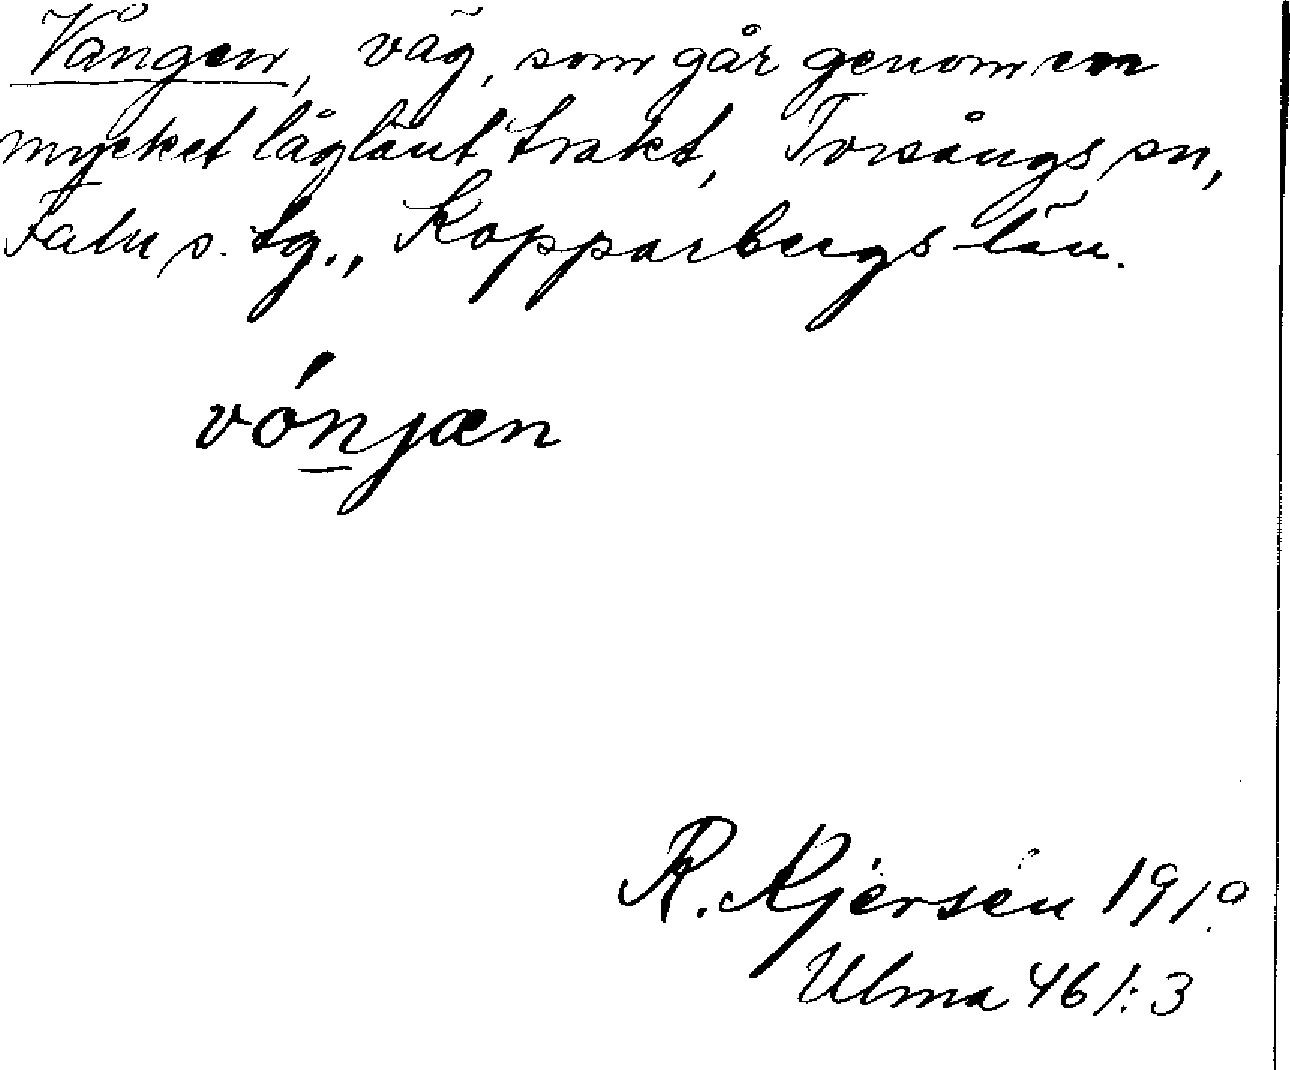 Vången, väg, som går genom en
mycket låglänt trakt, Torsångs sn,
Falu s. tg., Kopparbergs län.
vónjæn
R. Kjersén 1910.
Ulma 461:3